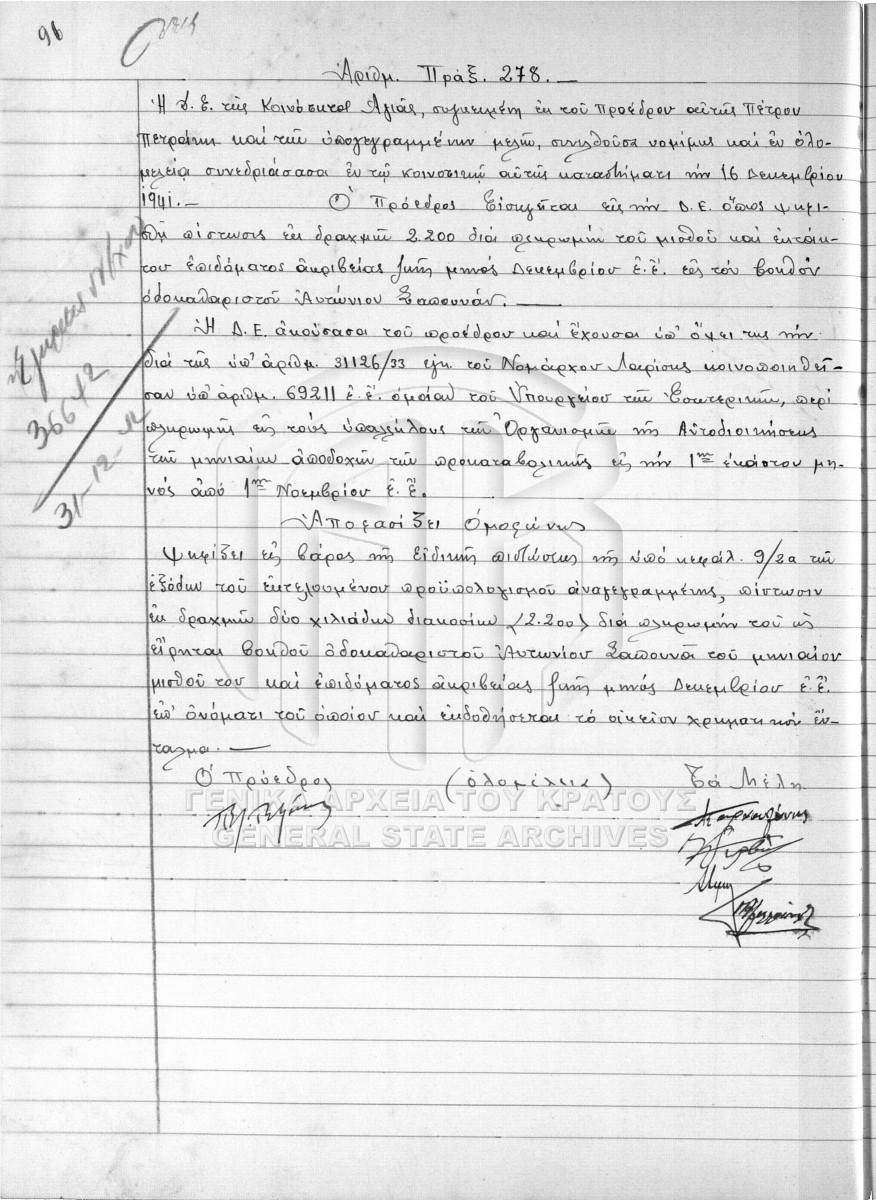 96
Ἀριθμ. Πράξ. 278.
Ἡ Δ.Ε. τῆς Κοινότητος Ἁγιᾶς, συγκειμένη ἐκ τοῦ Προέδρου αὐτῆς Πέτρου
Πετράκη καὶ τῶν ὑπογεγραμμένων μελῶν, συνελθοῦσα νομίμως καὶ ἐν ὁλο-
μελείᾳ συνεδριάσασα ἐν τῷ κοινοτικῷ αὐτῆς καταστήματι τὴν 16 Δεκεμβρίου
1941.— Ὁ Πρόεδρος Εἰσηγεῖται εἰς τὴν Δ.Ε. ὅπως ψηφι-
σθῇ πίστωσις ἐκ δραχμῶν 2.200 διὰ πληρωμὴν τοῦ μισθοῦ καὶ ἐκτάκ-
του ἐπιδόματος ἀκριβείας ζωῆς μηνὸς Δεκεμβρίου ἐ.ἔ. εἰς τὸν βοηθὸν
ὁδοκαθαριστοῦ Ἀντώνιον Σαπουνᾶν.—
Ἡ Δ.Ε. ἀκούσασα τοῦ προέδρου καὶ ἔχουσα ὑπ' ὄψει της τὴν
διὰ τῆς ὑπ' ἀριθμ. 31126/33 ἐγκ. τοῦ Νομάρχου Λαρίσης κοινοποιηθεῖ-
σαν ὑπ' ἀριθμ. 69211 ἐ.ἔ. ὁμοίαν τοῦ Ὑπουργείου τῶν Ἐσωτερικῶν, περὶ
πληρωμῆς εἰς τοὺς ὑπαλλήλους τῶν Ὀργανισμῶν τῆς Αὐτοδιοικήσεως
τῶν μηνιαίων ἀποδοχῶν των προκαταβολικῶς εἰς τὴν 1ην ἑκάστου μη-
νὸς ἀπὸ 1ης Νοεμβρίου ἐ.ἔ.
Ἀποφασίζει Ὁμοφώνως
Ψηφίζει εἰς βάρος τῆς εἰδικῆς πιστώσεως τῆς ὑπὸ κεφάλ. 9/2α τῶν
ἐξόδων τοῦ ἐκτελουμένου προϋπολογισμοῦ ἀναγεγραμμένης, πίστωσιν
ἐκ δραχμῶν δύο χιλιάδων διακοσίων (2.200) διὰ πληρωμὴν τοῦ ὡς
εἴρηται βοηθοῦ ὁδοκαθαριστοῦ Ἀντωνίου Σαπουνᾶ τοῦ μηνιαίου
μισθοῦ του καὶ ἐπιδόματος ἀκριβείας ζωῆς μηνὸς Δεκεμβρίου ἐ.ἔ.
ἐπ' ὀνόματι τοῦ ὁποίου καὶ ἐκδοθήσεται τὸ οἰκεῖον χρηματικὸν ἔν-
ταλμα.—
Ὁ Πρόεδρος (ὁλομέλεια) Τὰ Μέλη
36642
31-12-
ΓΕΝΙΚΑ ΑΡΧΕΙΑ ΤΟΥ ΚΡΑΤΟΥΣ
GENERAL STATE ARCHIVES